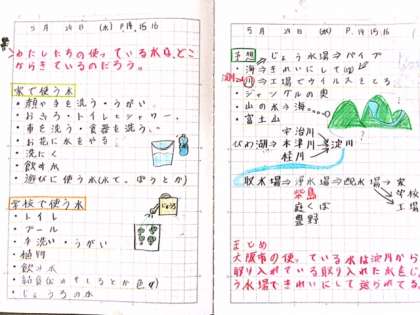 5月29日(水) P.14,15,16
わたしたちの使っている水は、どこ
からきているのだろう。
家で使う水
・顔や手を洗う・うがい
・おふろ・トイレ・シャワー
・車を洗う・食器を洗う
・お花に水をやる
・洗たく
・飲む水
・遊びに使う水(水で、
学校で使う水
・トイレ
・プール
・手洗い・うがい
・植物
・飲み水
・じょうろの水
じょうろ
5月29日(水) P.14,15,16
予想 ・じょう水場⇒パイプ
・海⇒きれいにして
川⇒工場でウイルスをとる
・ジャングルの奥
・山の水⇒海
・富士山
宇治川
びわ湖⇒木津川⇒淀川
桂川
取水場⇒浄水場⇒配水場→家
柴島
学校
庭くぼ
工場
豊野
まとめ
大阪市の使っている水は淀川から
取り入れている取り入れた水をじょ
う水場できれいにして送られてくる。